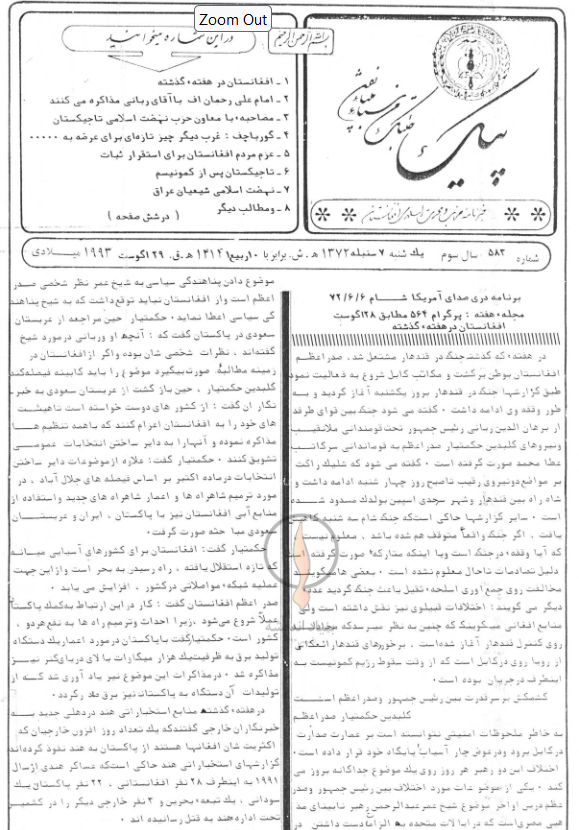 Zoom Out
بسم الله الرحمن الرحیم
پیک
خبرنامه
در این شماره میخوانید
۱ ـ افغانستان در هفته گذشته
۲ ـ امام علی رحمان اف با آقای ربانی مذاکره می کنند
۳ ـ مصاحبه با معاون حزب نهضت اسلامی تاجیکستان
۴ ـ گورباچف : غرب دیگر چیز تازه‌ای برای عرضه به ۰۰۰۰۰
۵ ـ عزم مردم افغانستان برای استقرار ثبات
۶ ـ تاجیکستان پس از کمونیسم
۷ ـ نهضت اسلامی شیعیان عراق
۸ ـ ومطالب دیگر
( درشش صفحه )
شماره ۵۸۳ سال سوم یك شنبه ۷ سنبله ۱۳۷۲ ه‍ . ش. برابر با ۱۰ ربیع ۱ ۱۴۱۴ ه‍ . ق. ۲۹ اگوست ۱۹۹۳ میلادی
برنامه دری صدای آمریکا شام ۷۲/۶/۶
مجله هفته : پرگرام ۵۶۴ مطابق ۲۸ اگوست
افغانستان در هفته گذشته
در هفته که گذشت جنگ در قندهار مشتعل شد ، صدراعظم
افغانستان بوطن برگشت و مکاتب کابل شروع به فعالیت نمود
طبق گزارشها جنگ در قندهار بروز یکشنبه آغاز گردید و به
طور وقفه وی ادامه داشت ۰ گفته می شود جنگ بین قوای طرفدار
از برهان الدین ربانی رئیس جمهور تحت قومندانی ملانقیب
ونیروهای گلبدین حکمتیار صدراعظم به قوماندانی سرکاتب
عطا محمد صورت گرفته است ۰ گفته می شود که شلیك راکت
بر مواضع دونیروی رقیب تاصبح روز چهار شنبه ادامه داشت و
شاه راه بین قندهار وشهر سرحدی اسپین بولدك مسدود شده
است ۰ سایر گزارشها حاکی است که جنگ شام سه شنبه کاهش
یافت ، اگر جنگ واقعاً متوقف هم شده باشد ، معلوم نیست
که آیا وقفه در جنگ است ویا اینکه متارکه صورت گرفته است
دلیل تصادمات تاحال معلوم نشده است ۰ بعضی ها میگویند
مخالفت روی جمع آوری اسلحه ثقیل باعث جنگ گردید عده
دیگر می گویند : اختلافات قبیلوی نیز نقش داشته است ولی
منابع افغانی میگویند که چنین به نظر میرسد که
روی کنترل قندهار آغاز شده است . برخوردهای قندهار انعکاسی
از رویا روی در کابل است که از وقت سقوط رژیم کمونیست به
اینطرف در جریان بوده است ۰
کشمکش بر سر قدرت بین رئیس جمهور وصدراعظم است
گلبدین حکمتیار صدراعظم
به خاطر ملحوظات امنیتی نتوانسته است بر عمارت صدارت
در کابل برود ودرعوض چار آسیاب پایگاه خود قرار داده است ۰
اختلاف این دو رهبر هر روز روی یك موضوع جداگانه بروز می
کند ۰ یکی از موضوعات مورد اختلاف بین رئیس جمهور وصدر
اعظم درین اواخر موضوع شیخ عمر عبدالرحمن رهبر نابینای مذ
هبی مصری است که در ایالات متحده به الزام دست داشتن در
موضوع دادن پناهندگی سیاسی به شیخ عمر نظر شخصی صدر
اعظم است واز افغانستان نباید توقع داشت که به شیخ پناهند
گی سیاسی اعطا نماید ۰ حکمتیار حین مراجعه از عربستان
سعودی در پاکستان گفت که : آنچه او وربانی در مورد شیخ
گفته‌اند ، نظرات شخصی شان بوده واگر از افغانستان در
زمینه مطالبهٔ صورت بگیرد موضوع را باید کابینه فیصله کند
گلبدین حکمتیار ، حین باز گشت از عربستان سعودی به خبر
نگاران گفت : از کشور های دوست خواسته است تا هیئت
های خود را به افغانستان اعزام کنند که باهمه تنظیم ها
مذاکره نموده و آنها را به دایر ساختن انتخابات عمومی
تشویق کنند ۰ حکمتیار گفت : علاوه از موضوعات دایر ساختن
انتخابات در ماه اکتبر بر اساس فیصله های جلال آباد ، در
مورد ترمیم شاهراه ها و اعمار شاهراه های جدید واستفاده از
منابع آبی افغانستان نیز با پاکستان ، ایران و عربستان
سعودی مبا حثه صورت گرفت ۰
حکمتیار گفت : افغانستان برای کشورهای آسیایی میانه
که تازه استقلال یافته ، راه رسیدن به بحر است واز این جهت
عملیه شبکه مواصلاتی در کشور ، افزایش می یابد ۰
صدر اعظم افغانستان گفت : کار در این ارتباط به کمك پاکستان
عملاً شروع می‌شود ، زیرا احداث وترمیم راه ها به نفع هردو
کشور است ۰ حکمتیار گفت با پاکستان در مورد اعمار یك دستگاه
تولید برق به ظرفیت یك هزار میگاوات بالای دریای کنر نیز
مذاکره شد ۰ در مذاکرات این موضوع نیز یاد آوری شد که از
تولیدات آن دستگاه به پاکستان نیز برق داده گردد ۰
در هفته گذشته منابع استخباراتی هند در دهلی جدید به
خبرنگاران خارجی گفتند که یك تعداد روز افزون خارجیان که
اکثریت شان افغانها هستند از پاکستان به هند نفوذ کرده‌اند
گزارشهای استخباراتی هند حاکی است که عساکر هندی از سال
۱۹۹۱ به اینطرف ۲۸ نفر افغانستانی ، ۲۲ نفر پاکستانی یك
سودانی ، یك تبعه بحرین و ۳ نفر خارجی دیگر را در کشمیر
تحت اداره هند به قتل رسانیده اند ۰